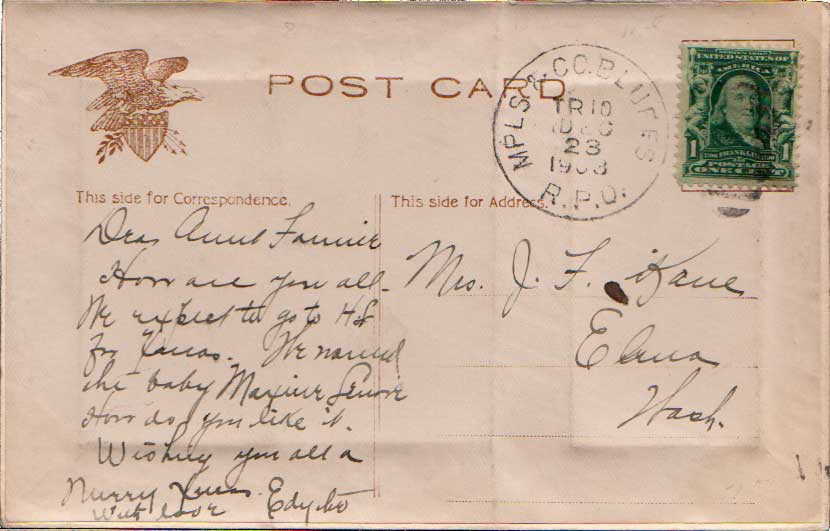 POST CARD
MPLS & CO. BLUFFS
TR 10
DEC
23
1908
R.P.O.
SERIES 1902
UNITED STATES OF
AMERICA
1 FRANKLIN 1
POSTAGE
ONE CENT
This side for Correspondence.
Dear Aunt Fannie
How are you all.
We expect to go to
for Xmas. We named
the baby Maxine
How do you like it.
Wishing you all a
Merry Xmas.
with love Edythe
This side for Address.
Mrs. J. F. Kane
Elma
Wash.